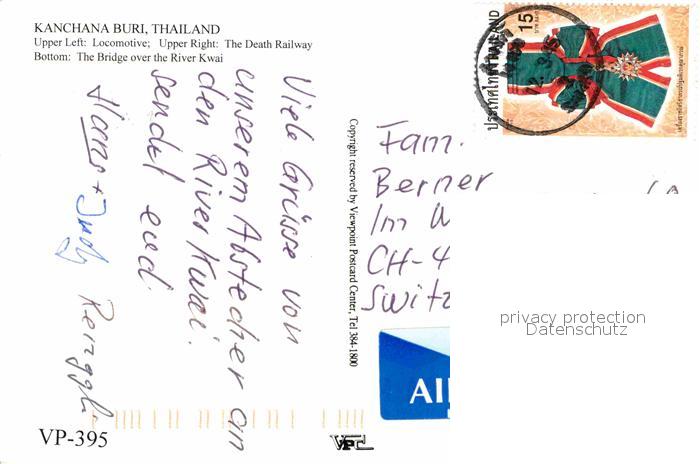 KANCHANA BURI, THAILAND
Upper Left: Locomotive; Upper Right: The Death Railway
Bottom: The Bridge over the River Kwai
Viele Grüsse von
unserem Abstecher an
den River Kwai.
sendet euch
Hans + Judy
Copyright reserved by Viewpoint Postcard Center, Tel 384-1800
ประเทศไทย THAILAND
15
บาท BAHT
Fam.
Berner
Im W
CH-4
Switz
privacy protection
Datenschutz
AI
VP-395